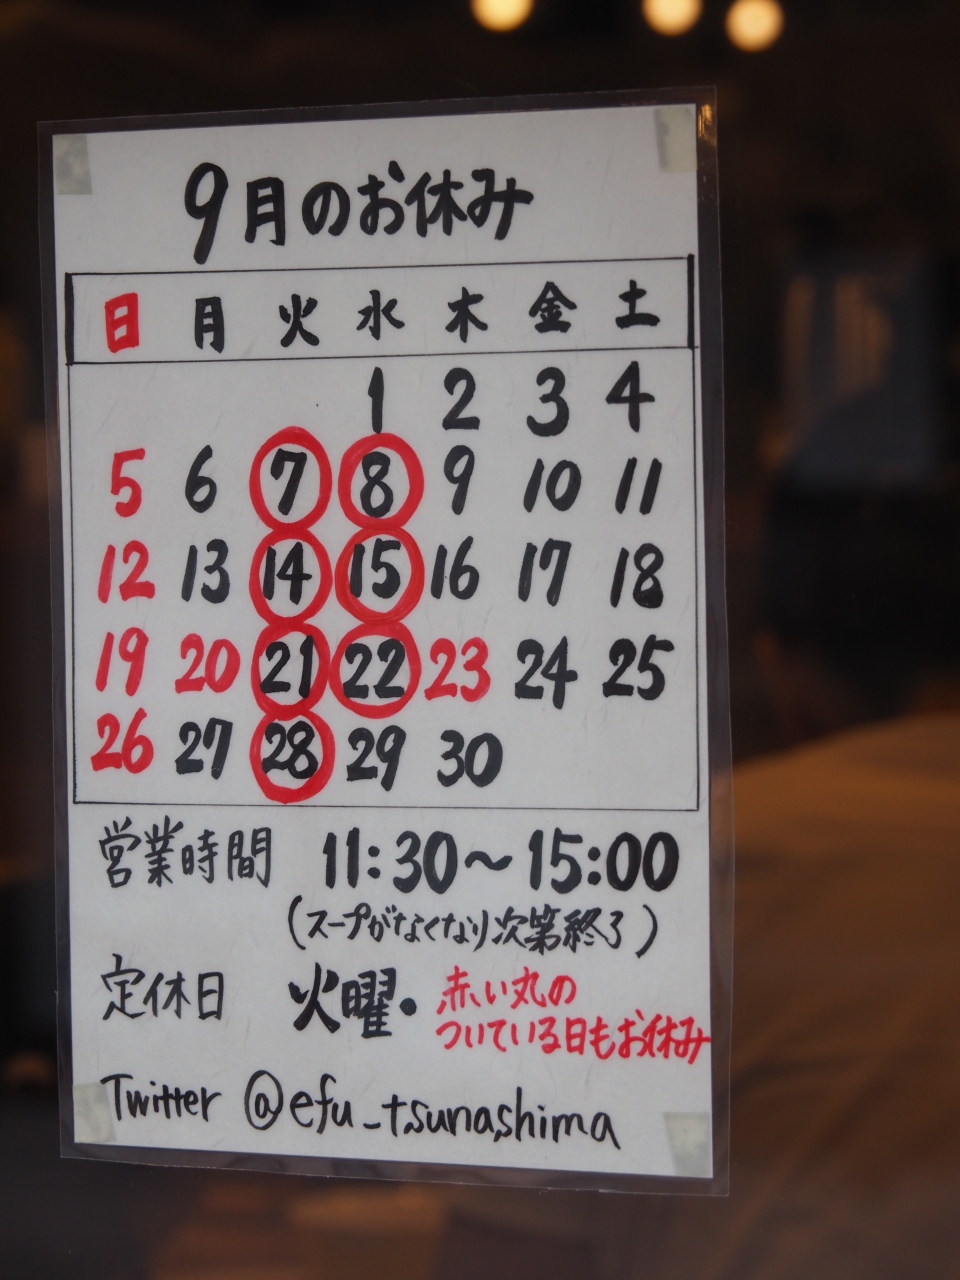 9月のお休み
日 月 火 水 木 金 土
1 2 3 4
5 6 7 8 9 10 11
12 13 14 15 16 17 18
19 20 21 22 23 24 25
26 27 28 29 30
営業時間 11:30〜15:00
(スープがなくなり次第終了)
定休日 火曜・赤い丸の
ついている日もお休み
Twitter @efu_tsunashima